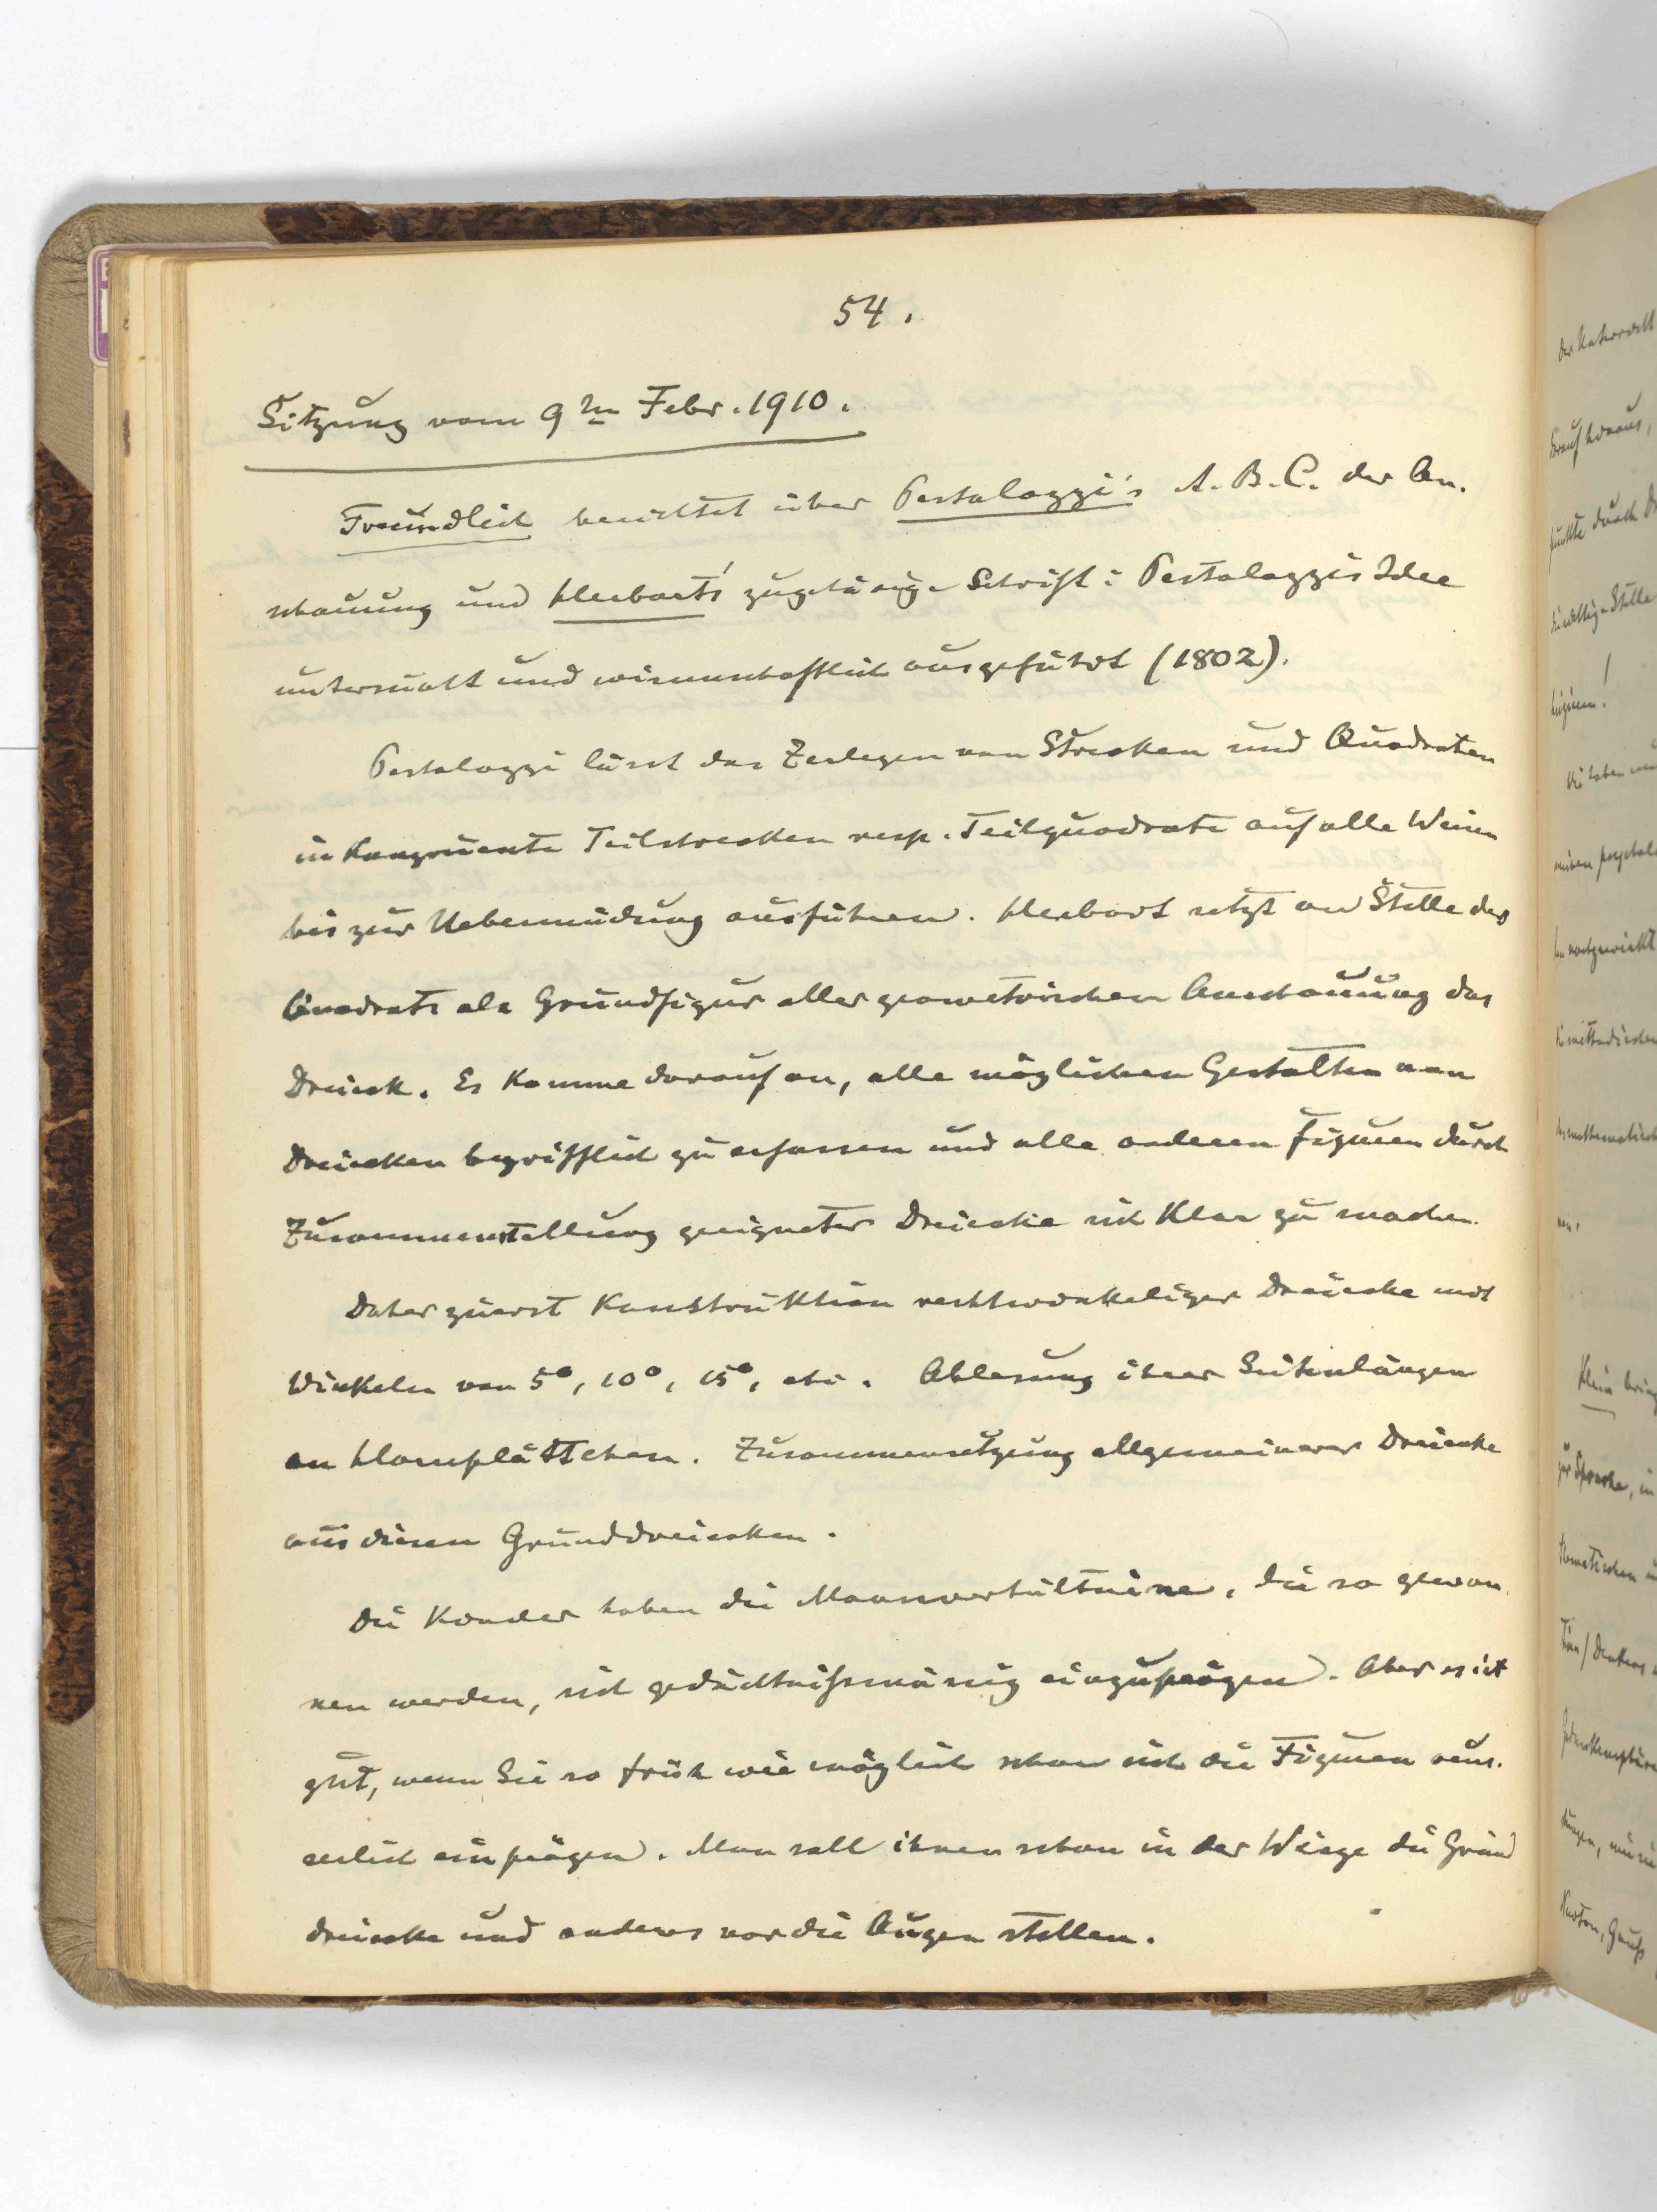 54.
Sitzung vom 9ten Febr. 1910.
Freundlich berichtet über Pestalozzi's A.B.C. der An-
schauung und Herbart's zugehörige Schrift: Pestalozzis Idee
untersucht und wissenschaftlich ausgeführt (1802).
Pestalozzi lässt das Zerlegen von Strecken und Quadraten
in kongruente Teilstrecken resp. Teilquadrate auf alle Weisen
bis zur Uebermüdung ausführen. Herbart setzt an Stelle des
Quadrats als Grundfigur aller geometrischen Anschauung das
Dreieck. Es komme darauf an, alle möglichen Gestalten von
Dreiecken begrifflich zu erfassen und alle anderen Figuren durch
Zusammenstellung geeigneter Dreiecke sich klar zu machen.
Daher zuerst Konstruktion rechtwinkeliger Dreiecke mit
Winkeln von 5°, 10°, 15°, etc. Ablesung ihrer Seitenlängen
an Hornplättchen. Zusammensetzung allgemeinerer Dreiecke
aus diesen Grunddreiecken.
Die Kinder haben die Maassverhältnisse, die so gewon-
nen werden, sich gedächtnißmässig einzuprägen. Aber es ist
gut, wenn Sie so früh wie möglich schon sich die Figuren äus-
serlich einprägen. Man soll ihnen schon in der Wiege die Grund
dreiecke und anderes vor die Augen stellen.